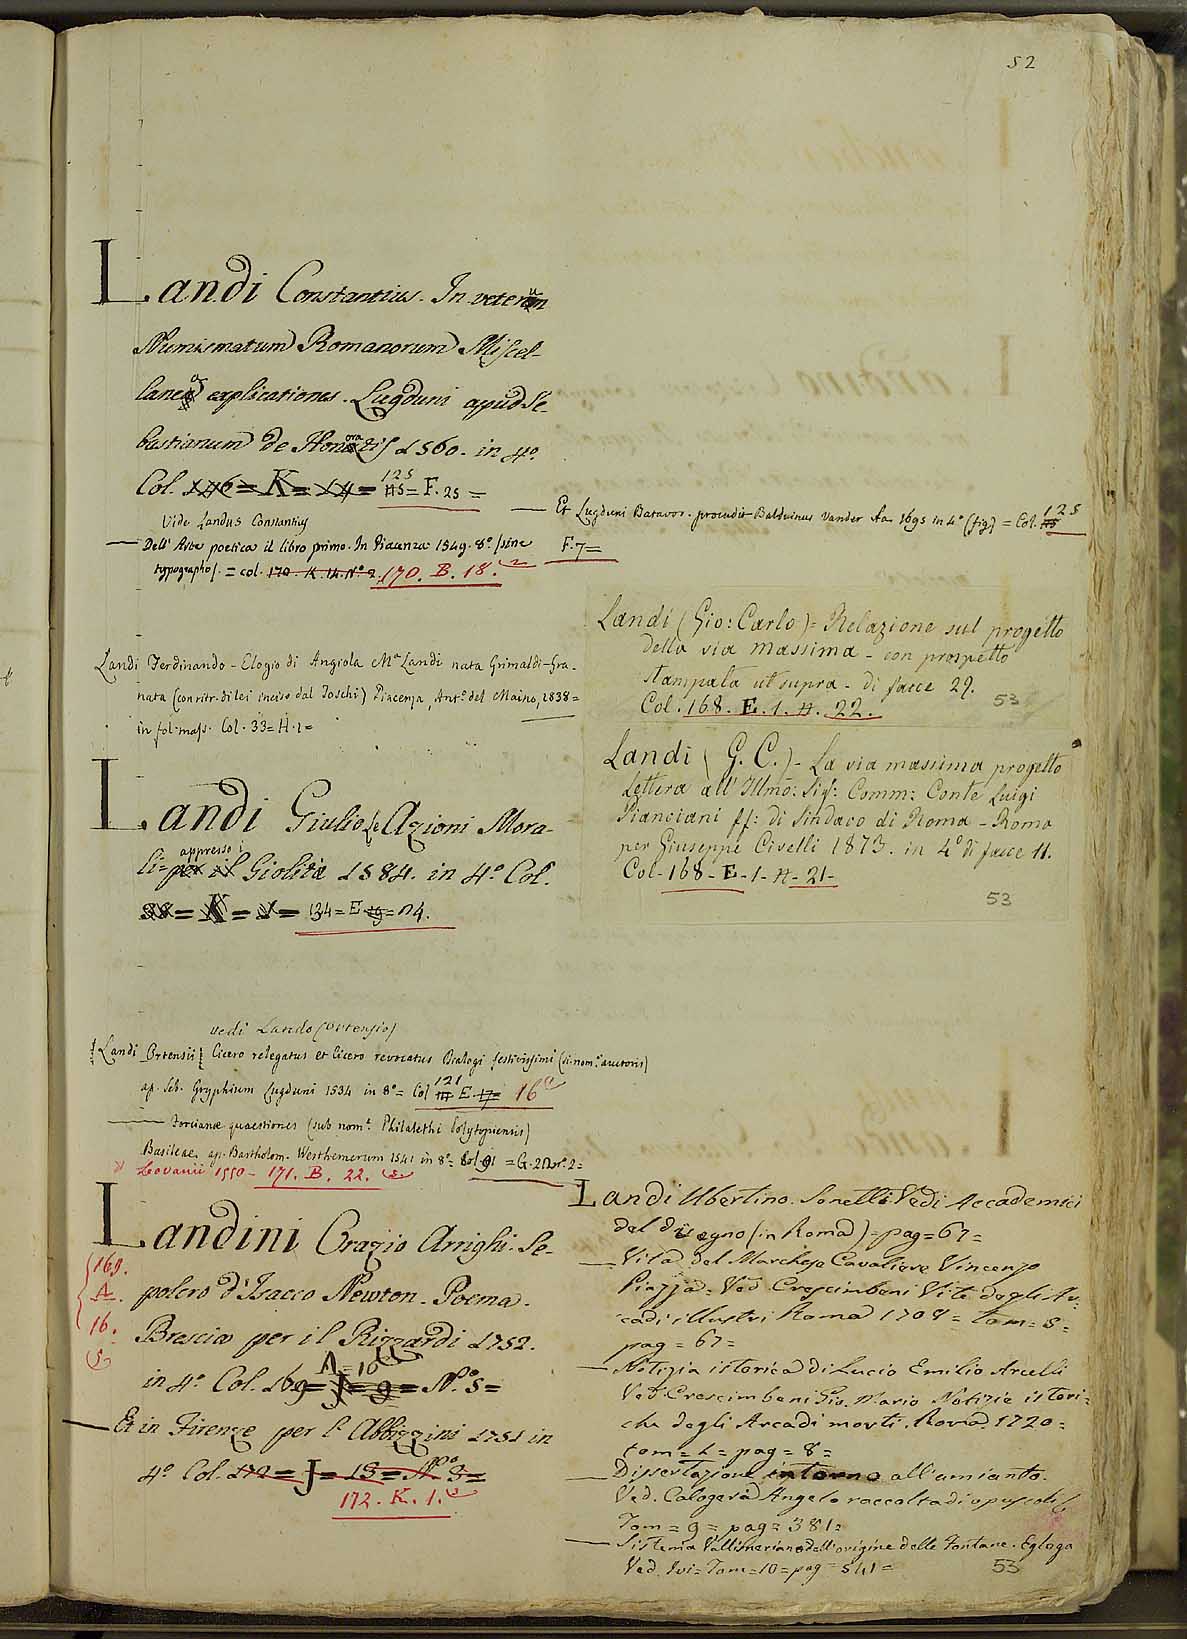 52
Landi Constantius. In veterum
Numismatum Romanorum Miscel-
lanea explicationes. Lugduni apud Se-
bastianum de Honoratis 1560. in 4º.
Col. 146 = K = 14 = 125 = F. 25 =
Vide Landus Constantius
— Et Lugduni Batavor. procudit Balduinus Vander Aa 1695 in 4º (fig) = Col. 125
F. 7 =
— Dell' Arte poetica il libro primo. In Piacenza 1549. 8º. (sine
typographo). = col. 170. K. 14. Nº 2. 170. B. 18.
Landi Ferdinando - Elogio di Angiola Mª Landi nata Grimaldi-Gra-
nata (con ritr. di lei inciso dal Toschi) Piacenza, Antº del Maino, 1838 =
in fol. mass. Col. 33 = H. 1 =
Landi Giulio le Azioni Mora-
li = per il appresso i Giolita 1584. in 4º. Col.
38 = K = 134 = E = n 4.
vedi Lando (Ortensio)
Landi Ortensii Cicero relegatus et Cicero revocatus Dialogi festivissimi (si. nom.e auctoris)
ap. Seb. Gryphium Lugduni 1534 in 8º = Col 121 E. 17 = 16
— Forcianæ quaestiones (sub nom.e Philalethi Polytopiensis)
Basileae ap. Bartholom. Westhemerum 1541 in 8º = Col 91 = G. 2 Nº. 2 =
Lovanii 1550 - 171. B. 22.
Landini Orazio Arrighi. Se-
polcro d'Isacco Newton. Poema.
Brescia per il Rizzardi 1752.
in 4º. Col. 169 = J = 9 = Nº. 5 =
A = 16
169.
A.
16.
5
— Et in Firenze per l' Albizzini 1751 in
4º Col. 172 = J = 15 = Nº 3 =
172. K. 1.
Landi (Gio: Carlo) = Relazione sul progetto
della via massima - con prospetto
stampata ut supra - di facce 29.
Col. 168. E. 1. A. 22.
53
Landi ( G. C. ) - La via massima progetto
Lettera all' Illmo: Sig: Comm: Conte Luigi
Pianciani ff: di Sindaco di Roma - Roma
per Giuseppe Civelli 1873. in 4º di facce 11.
Col - 168 - E - 1 - A - 21 -
53
Landi Ubertino. Sonetti. Vedi Accademici
del disegno (in Roma) = pag = 67 =
— Vita del Marchese Cavaliere Vincenzo
Piazza. Ved. Crescimbeni Vite degli Ar-
cadi illustri Roma 1708 = tom = 5 =
pag = 67 =
— Notizia istorica di Lucio Emilio Arcelli
Ved. Crescimbeni Gio. Mario Notizie istori-
che degli Arcadi morti. Roma 1720 =
tom = 1 = pag = 8 =
— Dissertazione intorno all'amianto.
Ved. Calogerà Angelo raccolta di opuscoli
Tom = 9 = pag = 381 =
— Sistema Vallisneriano dell'origine delle Fontane. Egloga
Ved. Ivi = Tom = 10 = pag = 541 =
53